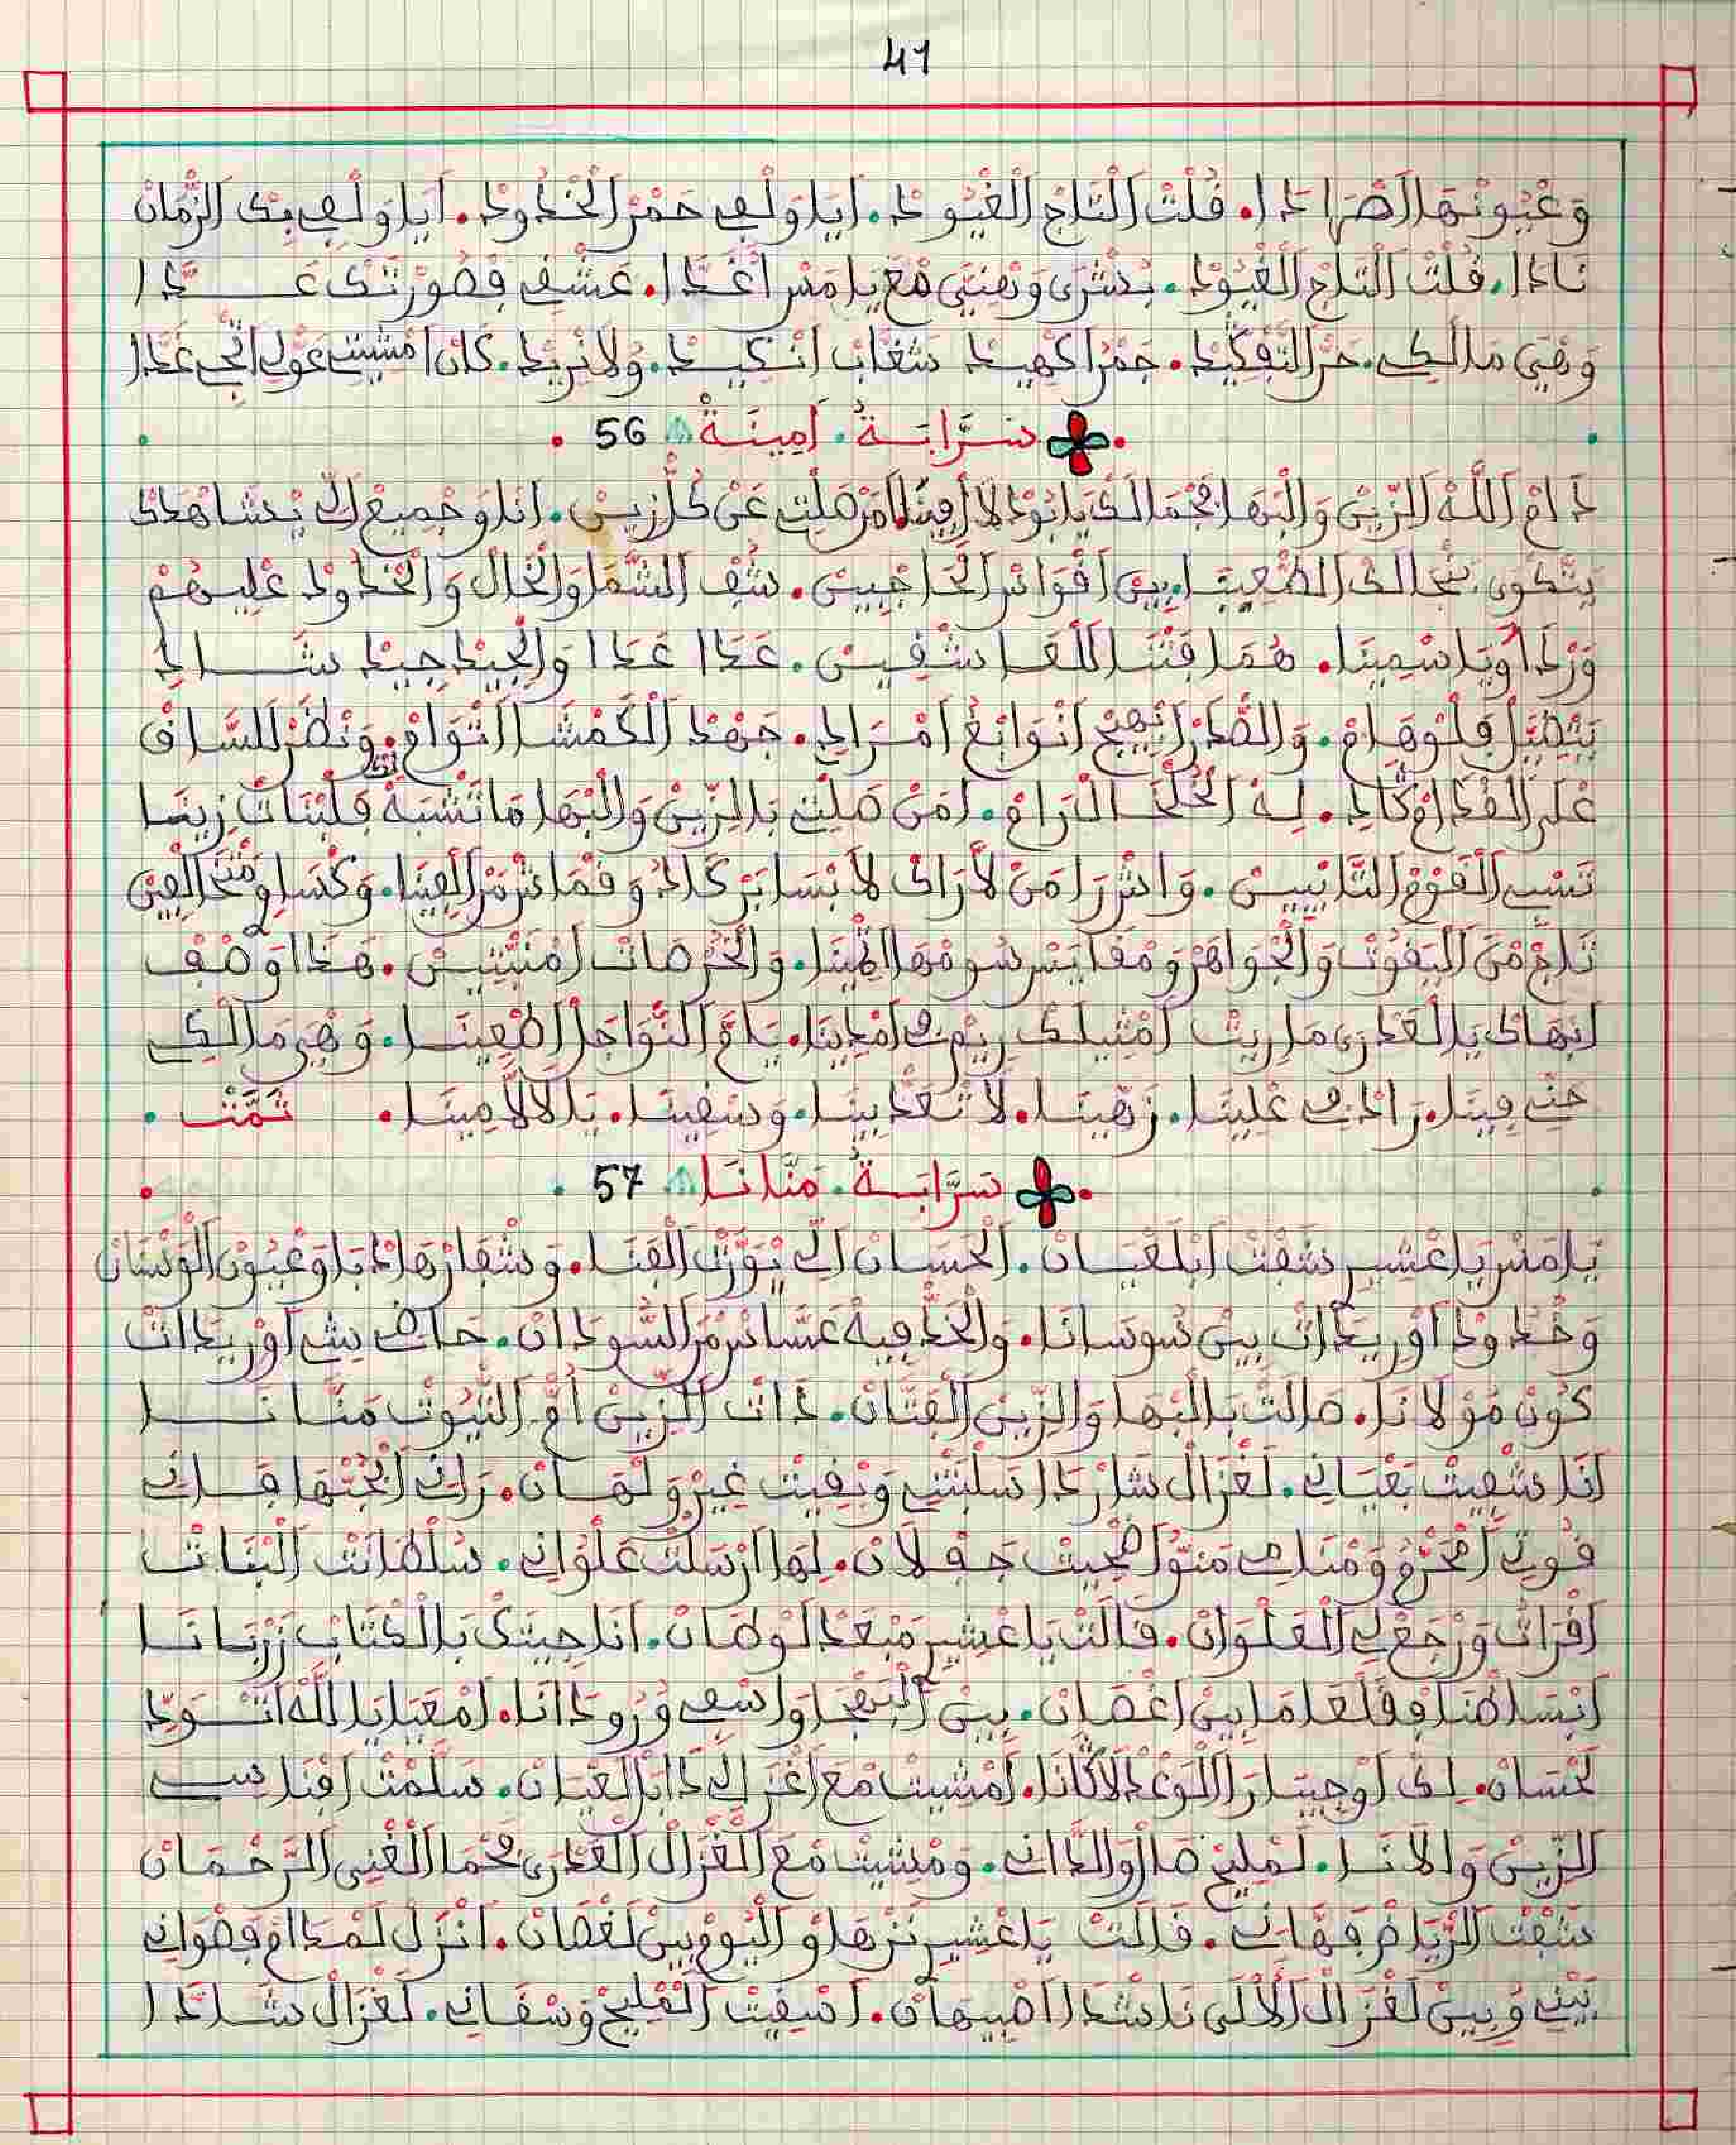 41
وَعْيُونْهَا الصْهَادَا. قُلْتْ التَّاجْ الْغْيُودْ. أيَا وَلْفِي حَمْرْ الْخْدُودْ. أيَا وَلْفِي بِكْ الزْمَانْ
نَادَا. قُلْتْ التَّاجْ الْغْيُودْ. بُشْرَى وَهْنِيتِي مْعَ يَامَسْ اغْدَا. عَشْقِي فْصُورْتَكْ عَدَّا
وَهْيَ مَالْكِي. حَرّْ التّفْكِيدْ. جَمْرَا كْهِيدْ شَعَّابْ انْكِيدْ. وُلَا نْرِيدْ. كَانْ امْشِيتِي عَوّْلِي انْجِي غَدَّا
سَرَّابَةُ أَمِينَةْ 56
دَامْ اللّهْ الزِّينْ وَالْبْهَا بْجْمَالَكْ يَا تُودْ لَا أَمِينَا. أَمَنْ صَلْتِ عَنْ كُلّْ زِينْ. أنَا وَجْمِيعْ الِّي يْشَاهْدَكْ
يَتْكْوَى بْنْجَالَكْ الطْعِينَا. بِينْ أقْوَاسْ الْحَاجْبِينْ. شُفْ الشَّمَا وَالْخَالْ وَالْخْدُودْ عْلِيهُمْ
وَرْدَا وُيَاسْمِينَا. هُمَا فَتْنَا لَلْعَاشْقِينْ. غَدَّا غَدَّا وَالْجِيدْ جِيدْ شَادِ
يَتْصَيّْلْ فَلْوْهَامْ. وَالصّْدَرْ انْهِيجْ انْوَابَغْ أمْرَادِي. جَهْدْ الْكَمْشَا اتْوَامْ. وَنْظَرْ لَلسَّاقْ
عْلَى الْقْدَامْ كَادِي. لِهْ الْخُلْخَالْ رَامْ. أمَنْ صَلْتِ بَالزِّينْ وَالْبْهَا مَا تْشْبَهْ فَلْبْنَاتْ زِينَا
تَسْبِي الْقَوْمْ التَّايْبِينْ. وَاشْ رَا مَنْ لَا رَاكْ لَابْسَا بَرْكَادُ وَقْمَاشْ مَرّْ الْفِينَا. وَكْسَاوِي مْنْ خَالْصِينْ
تَاجْ مْنَ الْيَقُوتْ وَالْجْوَاهَرْ وَمْقَايَسْ سُومْهَا اثْمِينَا. وَالْخُرْصَاتْ أمْنَبّْتِينْ. هَدَا وَصْفْ
ابْهَاكْ يَا لْعَدْرَى مَا رِيتْ أمْثِيلَكْ رِيمْ فِي امْدِينَا. يَامّْ النّْوَاجَلْ الطْعِينَا. وَهْيَ مَالْكِي
حَنِّي فِينَا. رَادْفِي عْلِينَا. زَهِّينَا. لَا تْعَدْبِينَا. وَسْقِينَا. يَا لَالَّة مِينَا. تَمَّتْ
سَرَّابَةُ مَنَّانَا 57
يَامَسْ يَا عْشِيرِي شَفْتْ ابْلَعْيَانْ. الْحَسَانْ الِّي يْوَرّْتْ الْفْنَا. وَشْفَارْهَا دْبَا وَعْيُونْ الْوَسْنَانْ
وَخْدُودْ اوْرِيدَاتْ بِينْ سُوسَانَا. وَالْخَدّْ فِيهْ عَسَّاسْ مَنْ السُّودَانْ. حَاضِي بِينْ اوْرِيدَاتْ
كُونْ مُوْلَانَا. صَالَتْ بَالْبْهَا وَالزِّينْ الْفَتَّانْ. دَاتْ الزِّينْ أُمّْ التّْيُوتْ مَنَّانَا
أنَا شْفِيتْ بَعْيَانِي. لَغْزَالْ شَارْدَا سَلْبَتْنِي وَبْقِيتْ غِيرْ وَلْهَانْ. رَانِي ابْحُبّْهَا فَانِي
قُوتِي الْحْرَمْ وَمْنَامِي مَنُّو اضْحِيتْ جَفْلَانْ. لِهَا ارْسَلْتْ عَلْوَانِي. سُلْطَانْتْ الْبْنَاتْ
أقْرَاتْ وَرْجَعْ لِي الْعَلْوَانْ. قَالَتْ يَا عْشِيرِي مَنْعَدْ لَوْطَانْ. أنَا جِيتَكْ بَالْكْتَابْ زَرْبَانَا
أبْسَاطْنَا فِقَلْعَا مَابِينْ اغْصَانْ. بِينْ الْبَهْجَا وَاسْقِي وُرُودَانَا. امْعَايَا بَاللَّهْ اتْوَدِّي
لَحْسَانْ. لِكْ اوْجِيبَا رَا اللَّوْعْدْ لَا كَانَا. أمْشِيتْ مْعَ اغْزَالِي دَابَا الْعْيَانْ. سَلّْمْتْ افْنَاسِي
الزِّينْ وَالَانَا. لَمْلِيحْ صَالْ وَالدَّانِي. وَمْشِيتْ مْعَ الْغْزَالْ الْعَدْرَى يْحْمَا الْغْنِي الرَّحْمَانْ
شَفْتْ الرّْيَاضْ فَهَّانِي. قَالَتْ يَا عْشِيرِي نَزْهَاوْ الْيُومْ بِينْ لَغْصَانْ. أنْزَلْ لَمْدَامْ فَصْوَانِي
بَيْنِي وُبِينْ لَغْزَالْ الْالْلَى نَاشْدَا اصْبِيهَانْ. اسْقِيتْ الْمْلِيحْ وَسْقَانِي. لَغْزَالْ شَادَا